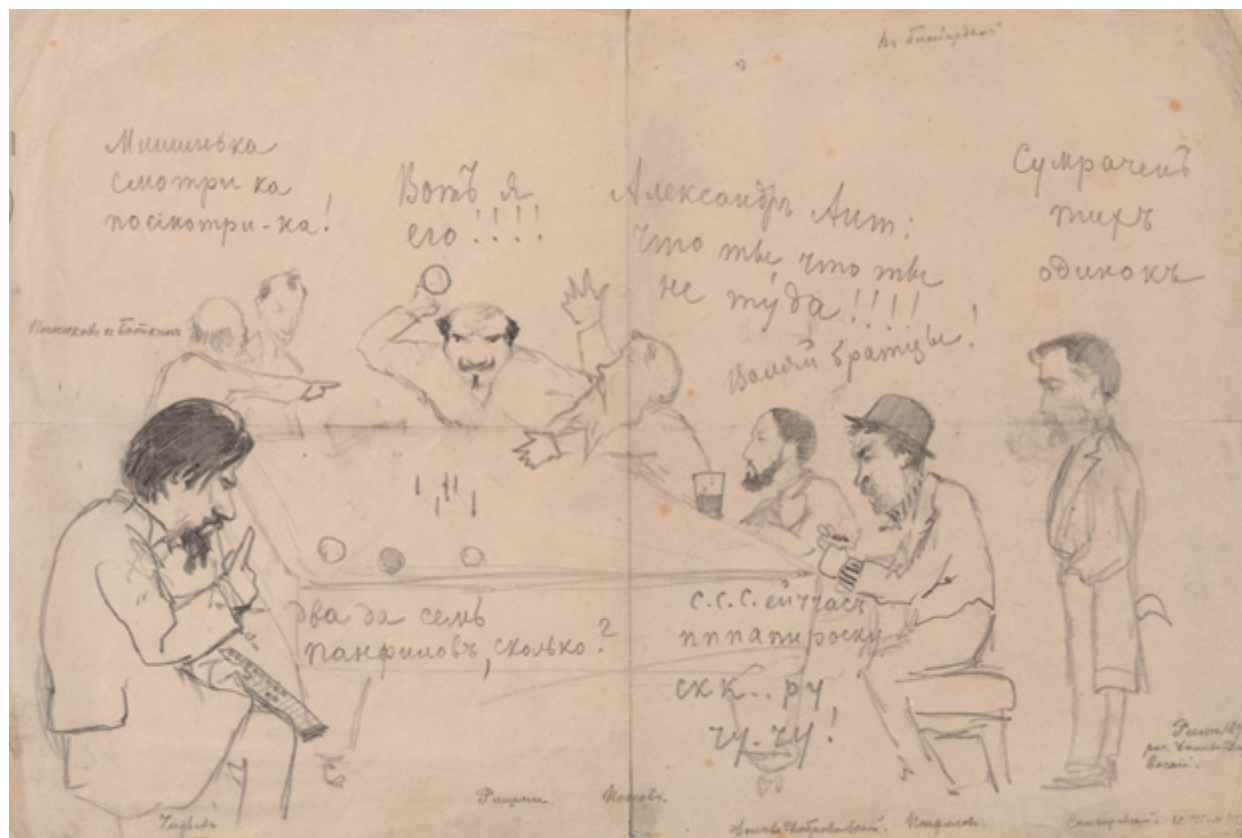 Мишинька
смотри ка
посмотри-ка!
Вотъ я
его!!!!
Александръ Ант:
что ты что ты
не ту́да!!!!
Валяй братцы!
Сумраченъ
тихъ
одинокъ
и Боткинъ
Два да семь
панфиловъ, сколько?
С.С.С. ейччасъ
пппапироску
скк..ру
чу-чу!
Рицони.
Поповъ.